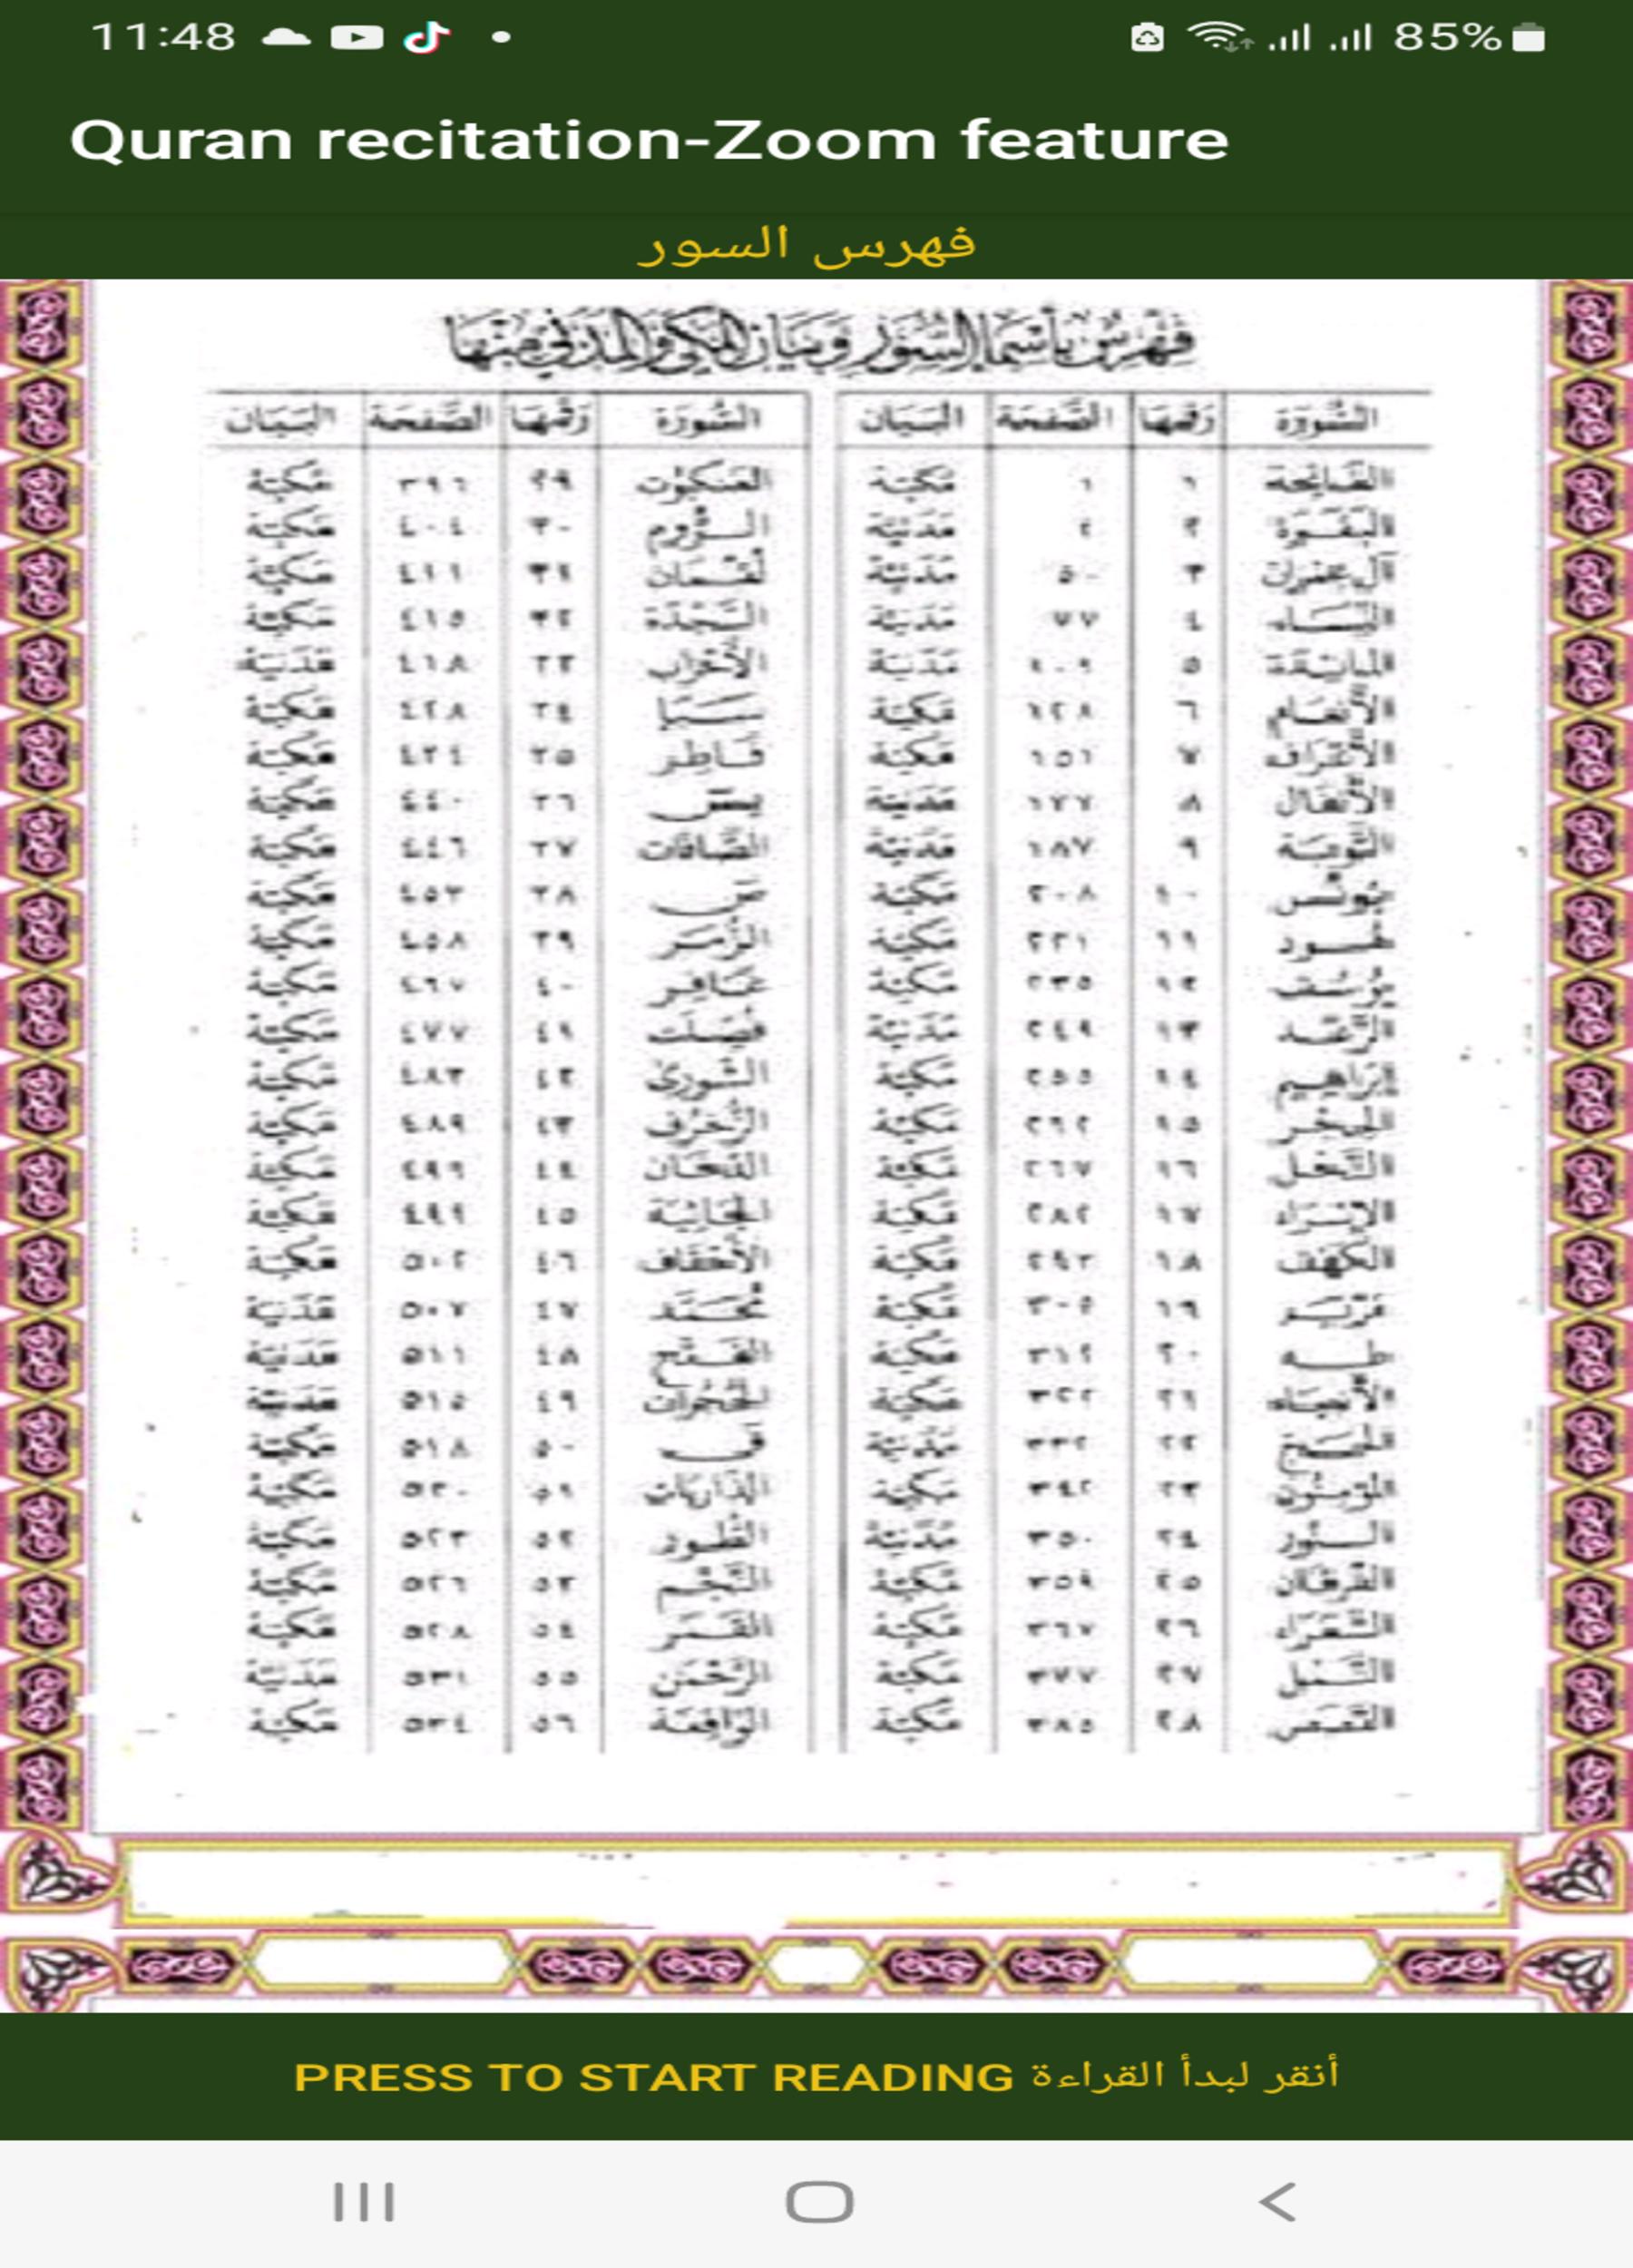 11:48
85%
Quran recitation-Zoom feature
فهرس السور
فهرس بأسماء السور وبيان المكي والمدني منها
السورة رقمها الصفحة البيان السورة رقمها الصفحة البيان
الفاتحة ١ ١ مكية العنكبوت ٢٩ ٣٩٦ مكية
البقرة ٢ ٢ مدنية الروم ٣٠ ٤٠٤ مكية
آل عمران ٣ ٥٠ مدنية لقمان ٣١ ٤١١ مكية
النساء ٤ ٧٧ مدنية السجدة ٣٢ ٤١٥ مكية
المائدة ٥ ١٠٦ مدنية الأحزاب ٣٣ ٤١٨ مدنية
الأنعام ٦ ١٢٨ مكية سبإ ٣٤ ٤٢٨ مكية
الأعراف ٧ ١٥١ مكية فاطر ٣٥ ٤٣٤ مكية
الأنفال ٨ ١٧٧ مدنية يس ٣٦ ٤٤٠ مكية
التوبة ٩ ١٨٧ مدنية الصافات ٣٧ ٤٤٦ مكية
يونس ١٠ ٢٠٨ مكية ص ٣٨ ٤٥٣ مكية
هود ١١ ٢٢١ مكية الزمر ٣٩ ٤٥٨ مكية
يوسف ١٢ ٢٣٥ مكية غافر ٤٠ ٤٦٧ مكية
الرعد ١٣ ٢٤٩ مدنية فصلت ٤١ ٤٧٧ مكية
إبراهيم ١٤ ٢٥٥ مكية الشورى ٤٢ ٤٨٣ مكية
الحجر ١٥ ٢٦٢ مكية الزخرف ٤٣ ٤٨٩ مكية
النحل ١٦ ٢٦٧ مكية الدخان ٤٤ ٤٩٦ مكية
الإسراء ١٧ ٢٨٢ مكية الجاثية ٤٥ ٤٩٩ مكية
الكهف ١٨ ٢٩٣ مكية الأحقاف ٤٦ ٥٠٢ مكية
مريم ١٩ ٣٠٥ مكية محمد ٤٧ ٥٠٧ مدنية
طه ٢٠ ٣١٢ مكية الفتح ٤٨ ٥١١ مدنية
الأنبياء ٢١ ٣٢٢ مكية الحجرات ٤٩ ٥١٥ مدنية
الحج ٢٢ ٣٣٢ مدنية ق ٥٠ ٥١٨ مكية
المؤمنون ٢٣ ٣٤٢ مكية الذاريات ٥١ ٥٢٠ مكية
النور ٢٤ ٣٥٠ مدنية الطور ٥٢ ٥٢٣ مكية
الفرقان ٢٥ ٣٥٩ مكية النجم ٥٣ ٥٢٦ مكية
الشعراء ٢٦ ٣٦٧ مكية القمر ٥٤ ٥٢٨ مكية
النمل ٢٧ ٣٧٧ مكية الرحمن ٥٥ ٥٣١ مدنية
القصص ٢٨ ٣٨٥ مكية الواقعة ٥٦ ٥٣٤ مكية
PRESS TO START READING أنقر لبدأ القراءة